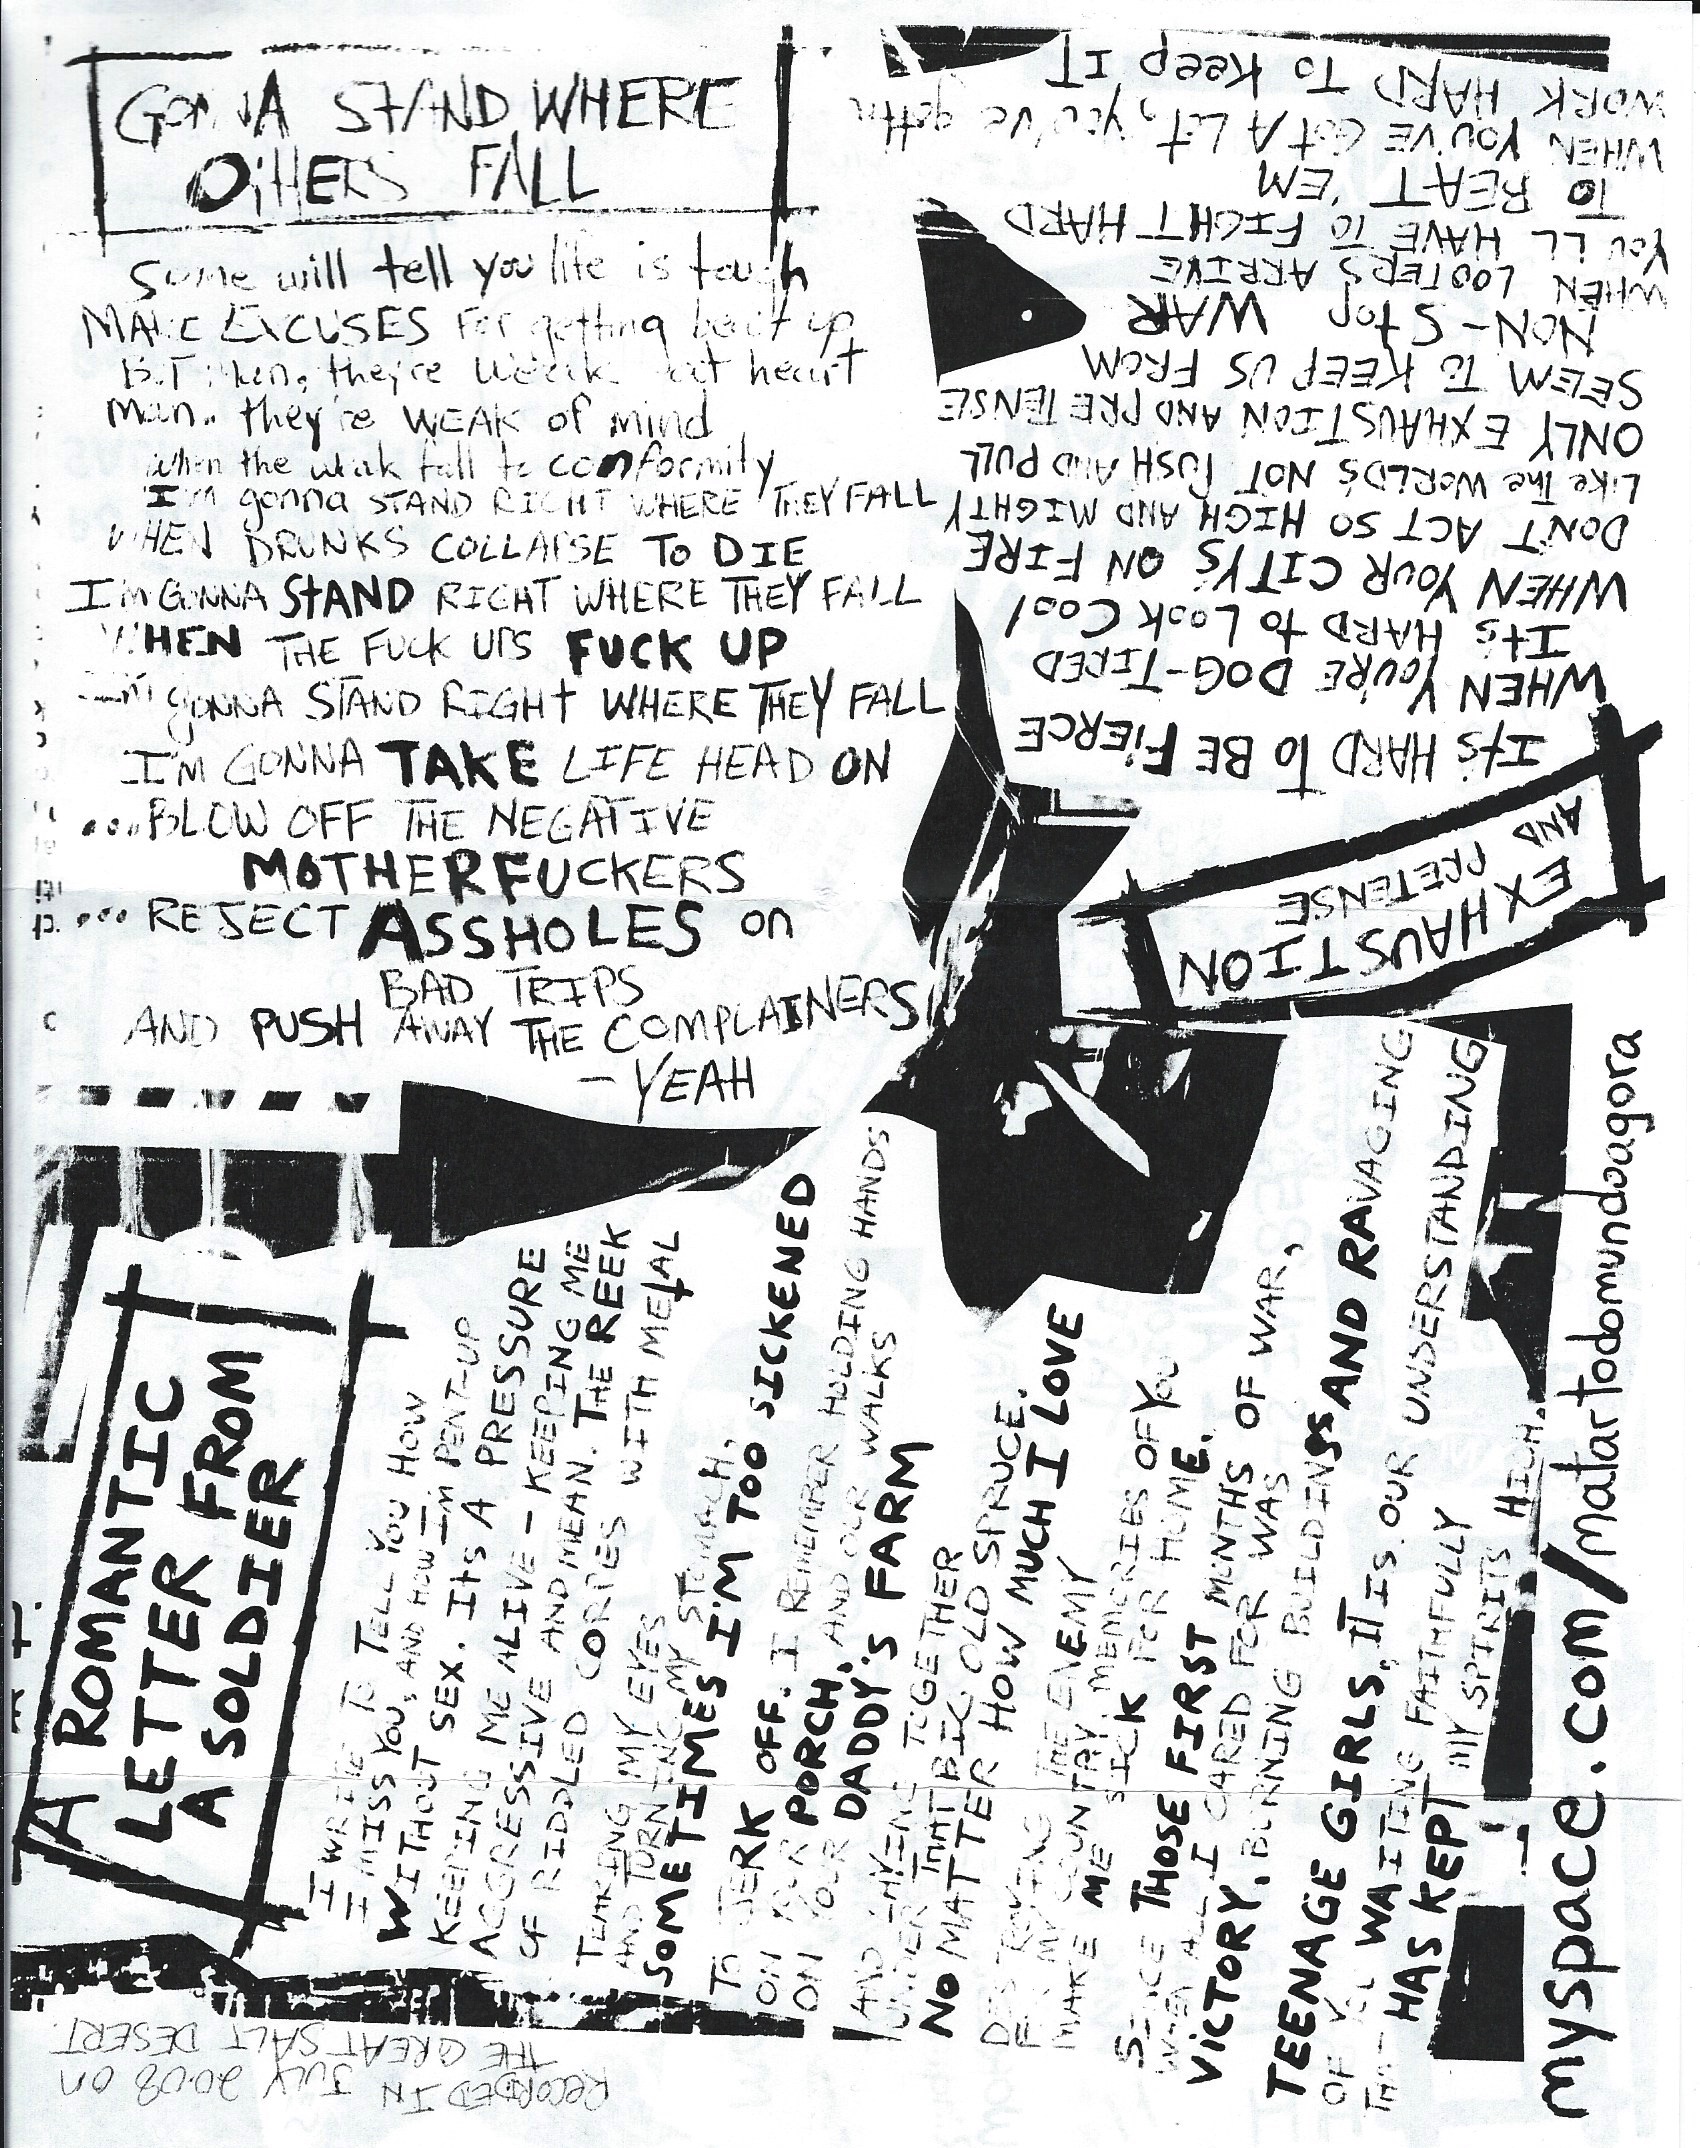 GONNA STAND WHERE
OTHERS FALL
Some will tell you life is tough
MAKE EXCUSES For getting beat up
BUT then, they're weak at heart
Man. they're WEAK of mind
When the weak fall to conformity
I'm gonna STAND RIGHT WHERE THEY FALL
WHEN DRUNKS COLLAPSE TO DIE
I'm GONNA STAND RIGHT WHERE THEY FALL
WHEN THE FUCK UPS FUCK UP
I'm gONNA STAND RIGHT WHERE THEY FALL
I'M GONNA TAKE LIFE HEAD ON
...BLOW OFF THE NEGATIVE
MOTHERFUCKERS
... REJECT ASSHOLES on
BAD TRIPS
AND PUSH AWAY THE COMPLAINERS!
- YEAH
EXHAUSTION
AND
PRETENSE
ITs HARD TO BE FiERCE
WHEN YOU'RE DOG-TIRED
ITs HARD to LOOK Cool
WHEN YOUR CITY'S ON FIRE
DON'T ACT SO HIGH AND MIGHTY
LIKE THE WORLD'S NOT PUSH AND PULL
ONLY EXHAUSTION AND PRETENSE
SEEM TO KEEP US FROM
NON-STOP WAR
WHEN LOOTERS ARRIVE
YOU'LL HAVE TO FIGHT HARD
TO BEAT 'EM
WHEN YOU'VE GOT A LOT, you've gotta
WORK HARD TO Keep IT
A ROMANTIC
LETTER FROM
A SOLDIER
I WRITE TO TELL YOU HOW
I MISS YOU, AND HOW I'm PENT-UP
WITHOUT SEX. ITs A PRESSURE
KEEPING ME ALIVE - KEEPING ME
AGGRESSIVE AND MEAN. THE REEK
OF RIDDLED CORPSES WITH METAL
TEARING MY EYES
AND TURNING MY STOMACH,
SOMETIMES I'M TOO SICKENED
TO JERK OFF. I REMEMBER HOLDING HANDS
ON YOUR PORCH, AND OUR WALKS
ON YOUR DADDY'S FARM
AND LAYING TOGETHER
UNDER THAT BIG OLD SPRUCE.
NO MATTER HOW MUCH I LOVE
DESTROYING THE ENEMY
FOR MY COUNTRY, MEMORIES OF YOU
MAKE ME SICK FOR HOME.
SINCE THOSE FIRST MONTHS OF WAR,
WHEN ALL I CARED FOR WAS
VICTORY, BURNING BUILDINGS AND RAVAGING
TEENAGE GIRLS, IT IS OUR UNDERSTANDING
OF YOU WAITING FAITHFULLY
THAT HAS KEPT MY SPIRITS HIGH.
myspace.com/matartodomundoagora
RECORDED IN JULY 2008 on
THE GREAT SALT DESERT.